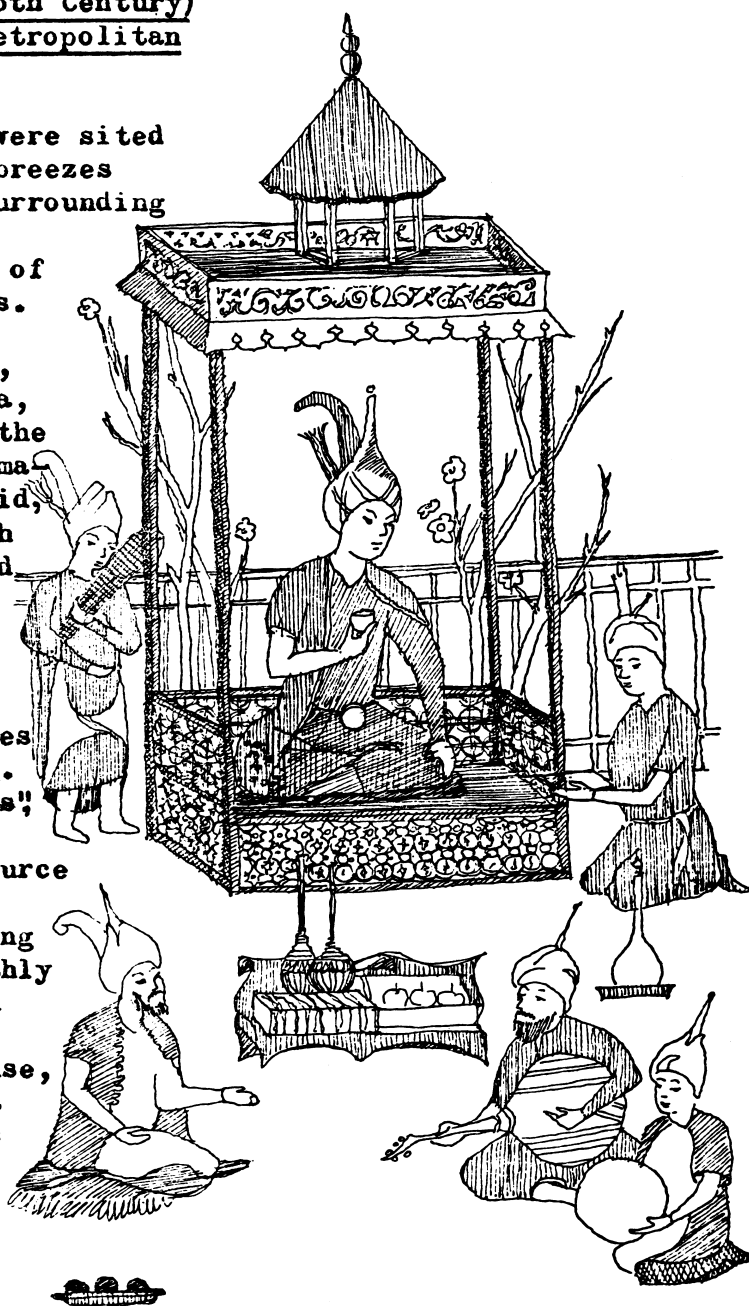 th Century)
etropolitan
were sited
breezes
urrounding
of
s.
,
a,
the
ma-
id,
h
d
es
.
s",
urce
ng
hly
se,